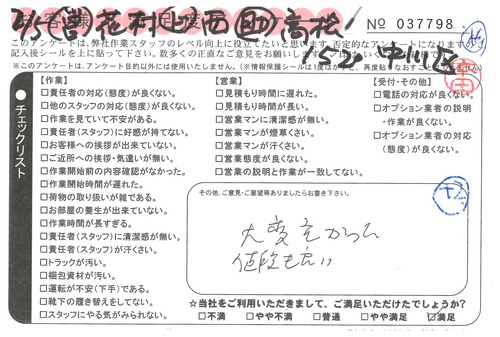 2/5 (営) 花村 上西 (助) 高松
15㎥ 中川区
№ 037798
このアンケートは、弊社作業スタッフのレベル向上に役立てたいと思います。否定的なアンケートになりますの
記入後シールを上に貼って下さい。数多くの正直なご意見をお願いします。
※このアンケートは、アンケート目的以外には使用いたしません。(※情報保護シールは1度はがすと、再度貼り
チェックリスト
【作業】
□責任者の対応(態度)が良くない。
□他のスタッフの対応(態度)が良くない。
□作業を見ていて不安がある。
□責任者(スタッフ)に好感が持てない。
□お客様への挨拶が出来ていない。
□ご近所への挨拶・気遣いが無い。
□作業開始前の内容確認がなかった。
□作業開始時間が遅れた。
□荷物の取り扱いが雑である。
□お部屋の養生が出来ていない。
□作業時間が長すぎる。
□責任者(スタッフ)に清潔感が無い。
□責任者(スタッフ)が汗くさい。
□トラックが汚い。
□梱包資材が汚い。
□運転が不安(下手)である。
□靴下の履き替えをしてない。
□スタッフにやる気がみられない。
【営業】
□見積もり時間に遅れた。
□見積もり時間が長い。
□営業マンに清潔感が無い。
□営業マンが煙草くさい。
□営業マンが汗くさい。
□営業態度が良くない。
□営業の説明と作業が一致してない。
【受付・その他】
□電話の対応が良くない。
□オプション業者の説明
・作業が良くない。
□オプション業者の対応
(態度)が良くない。
その他、ご意見・ご要望等ありましたらお書き下さい。
大変気分よく
値段も良い
☆当社をご利用いただきまして、ご満足いただけたでしょうか?
□不満 □やや不満 □普通 □やや満足 ☑満足